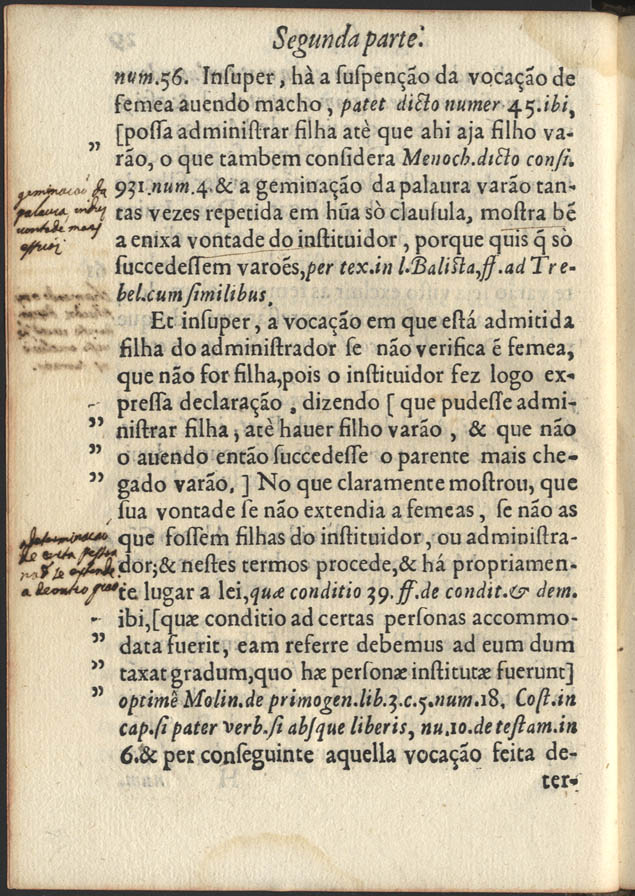 Segunda parte.
num.56. Inſuper, hà a ſuſpenção da vocação de
femea auendo macho, patet dicto numer 45.ibi,
[poſſa adminiſtrar filha atè que ahi aja filho va-
rão, o que tambem conſidera Menoch.dicto conſi.
931.num.4.& a geminação da palaura varão tan-
tas vezes repetida em hũa sò clauſula, moſtra bẽ
a enixa vontade do inſtituidor, porque quis q̃ sò
ſuccedeſſem varoẽs, per tex.in l.Baliſta,ff.ad Tre-
bel.cum ſimilibus.
Et inſuper, a vocação em que eſtá admitida
filha do adminiſtrador ſe não verifica ẽ femea,
que não for filha,pois o inſtituidor fez logo ex-
preſſa declaração, dizendo [ que pudeſſe admi-
niſtrar filha, atè hauer filho varão , & que não
o auendo então ſuccedeſſe o parente mais che-
gado varão.] No que claramente moſtrou, que
ſua vontade ſe não extendia a femeas, ſe não as
que foſſem filhas do inſtituidor, ou adminiſtra-
dor;& neſtes termos procede,& há propriamen-
te lugar a lei,quæ conditio 39.ff.de condit.& dem.
ibi,[quæ conditio ad certas perſonas accommo-
data fuerit, eam referre debemus ad eum dum
taxat gradum,quo hæ perſonæ inſtitutæ fuerunt]
optimê Molin.de primogen.lib.3.c.5.num.18. Coſt.in
cap.ſi pater verb.ſi abſque liberis, nu.10.de teſtam.in
6.& per conſeguinte aquella vocação feita de-
ter-
geminacaõ da
palaura
a determinacaõ
de certa pessoa